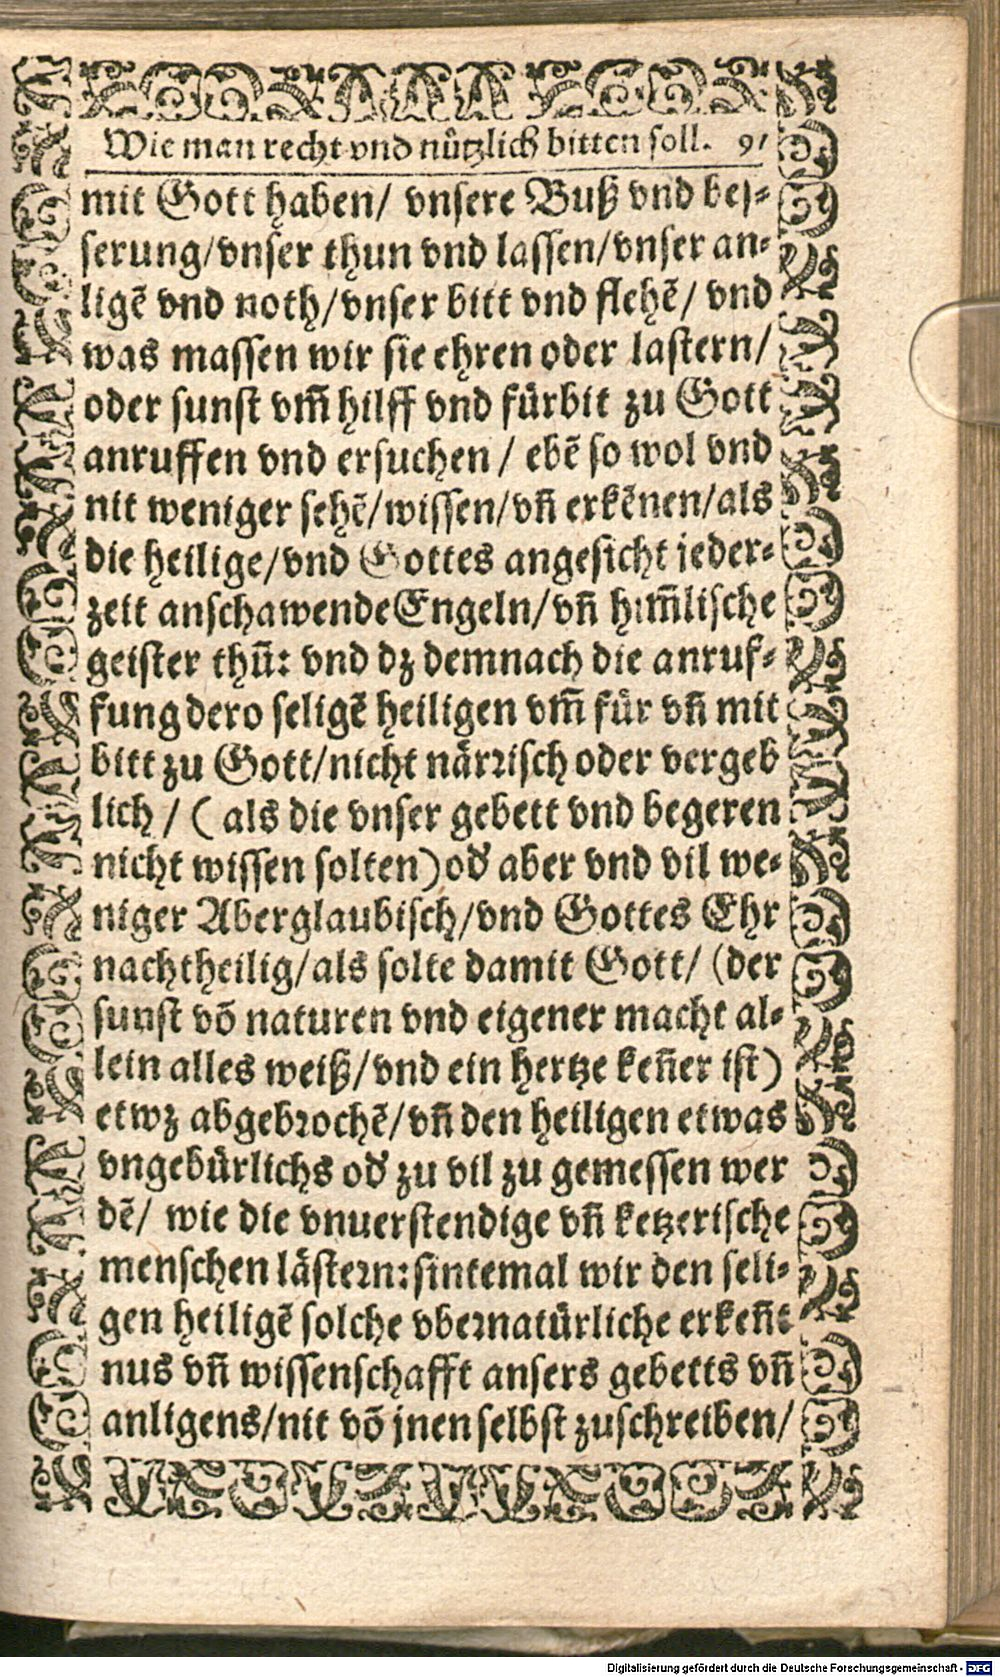 Wie man recht vnd nützlich bitten soll. 91
mit Gott haben/ vnsere Buß vnd bes-
serung/vnser thun vnd lassen/vnser an-
ligẽ vnd noth/vnser bitt vnd flehẽ/ vnd
was massen wir sie ehren oder lastern/
oder sunst vm̃ hilff vnd fürbit zu Gott
anruffen vnd ersuchen/ ebẽ so wol vnd
nit weniger sehẽ/wissen/vñ erkẽnen/als
die heilige/vnd Gottes angesicht jeder-
zeit anschawende Engeln/vñ him̃lische
geister thũ: vnd dz demnach die anruf-
fung dero seligẽ heiligen vm̃ für vñ mit
bitt zu Gott/nicht närrisch oder vergeb
lich/ (als die vnser gebett vnd begeren
nicht wissen solten) od' aber vnd vil we-
niger Aberglaubisch/vnd Gottes Ehr
nachtheilig/als solte damit Gott/ (der
sunst võ naturen vnd eigener macht al-
lein alles weiß/vnd ein hertze keñer ist)
etwz abgebrochẽ/vñ den heiligen etwas
vngebürlichs od' zu vil zu gemessen wer
dẽ/ wie die vnuerstendige vñ ketzerische
menschen lästern: sintemal wir den seli-
gen heiligẽ solche vbernatürliche erkeñt
nus vñ wissenschafft ansers gebetts vñ
anligens/nit võ jnen selbst zuschreiben/
Digitalisierung gefördert durch die Deutsche Forschungsgemeinschaft - DFG